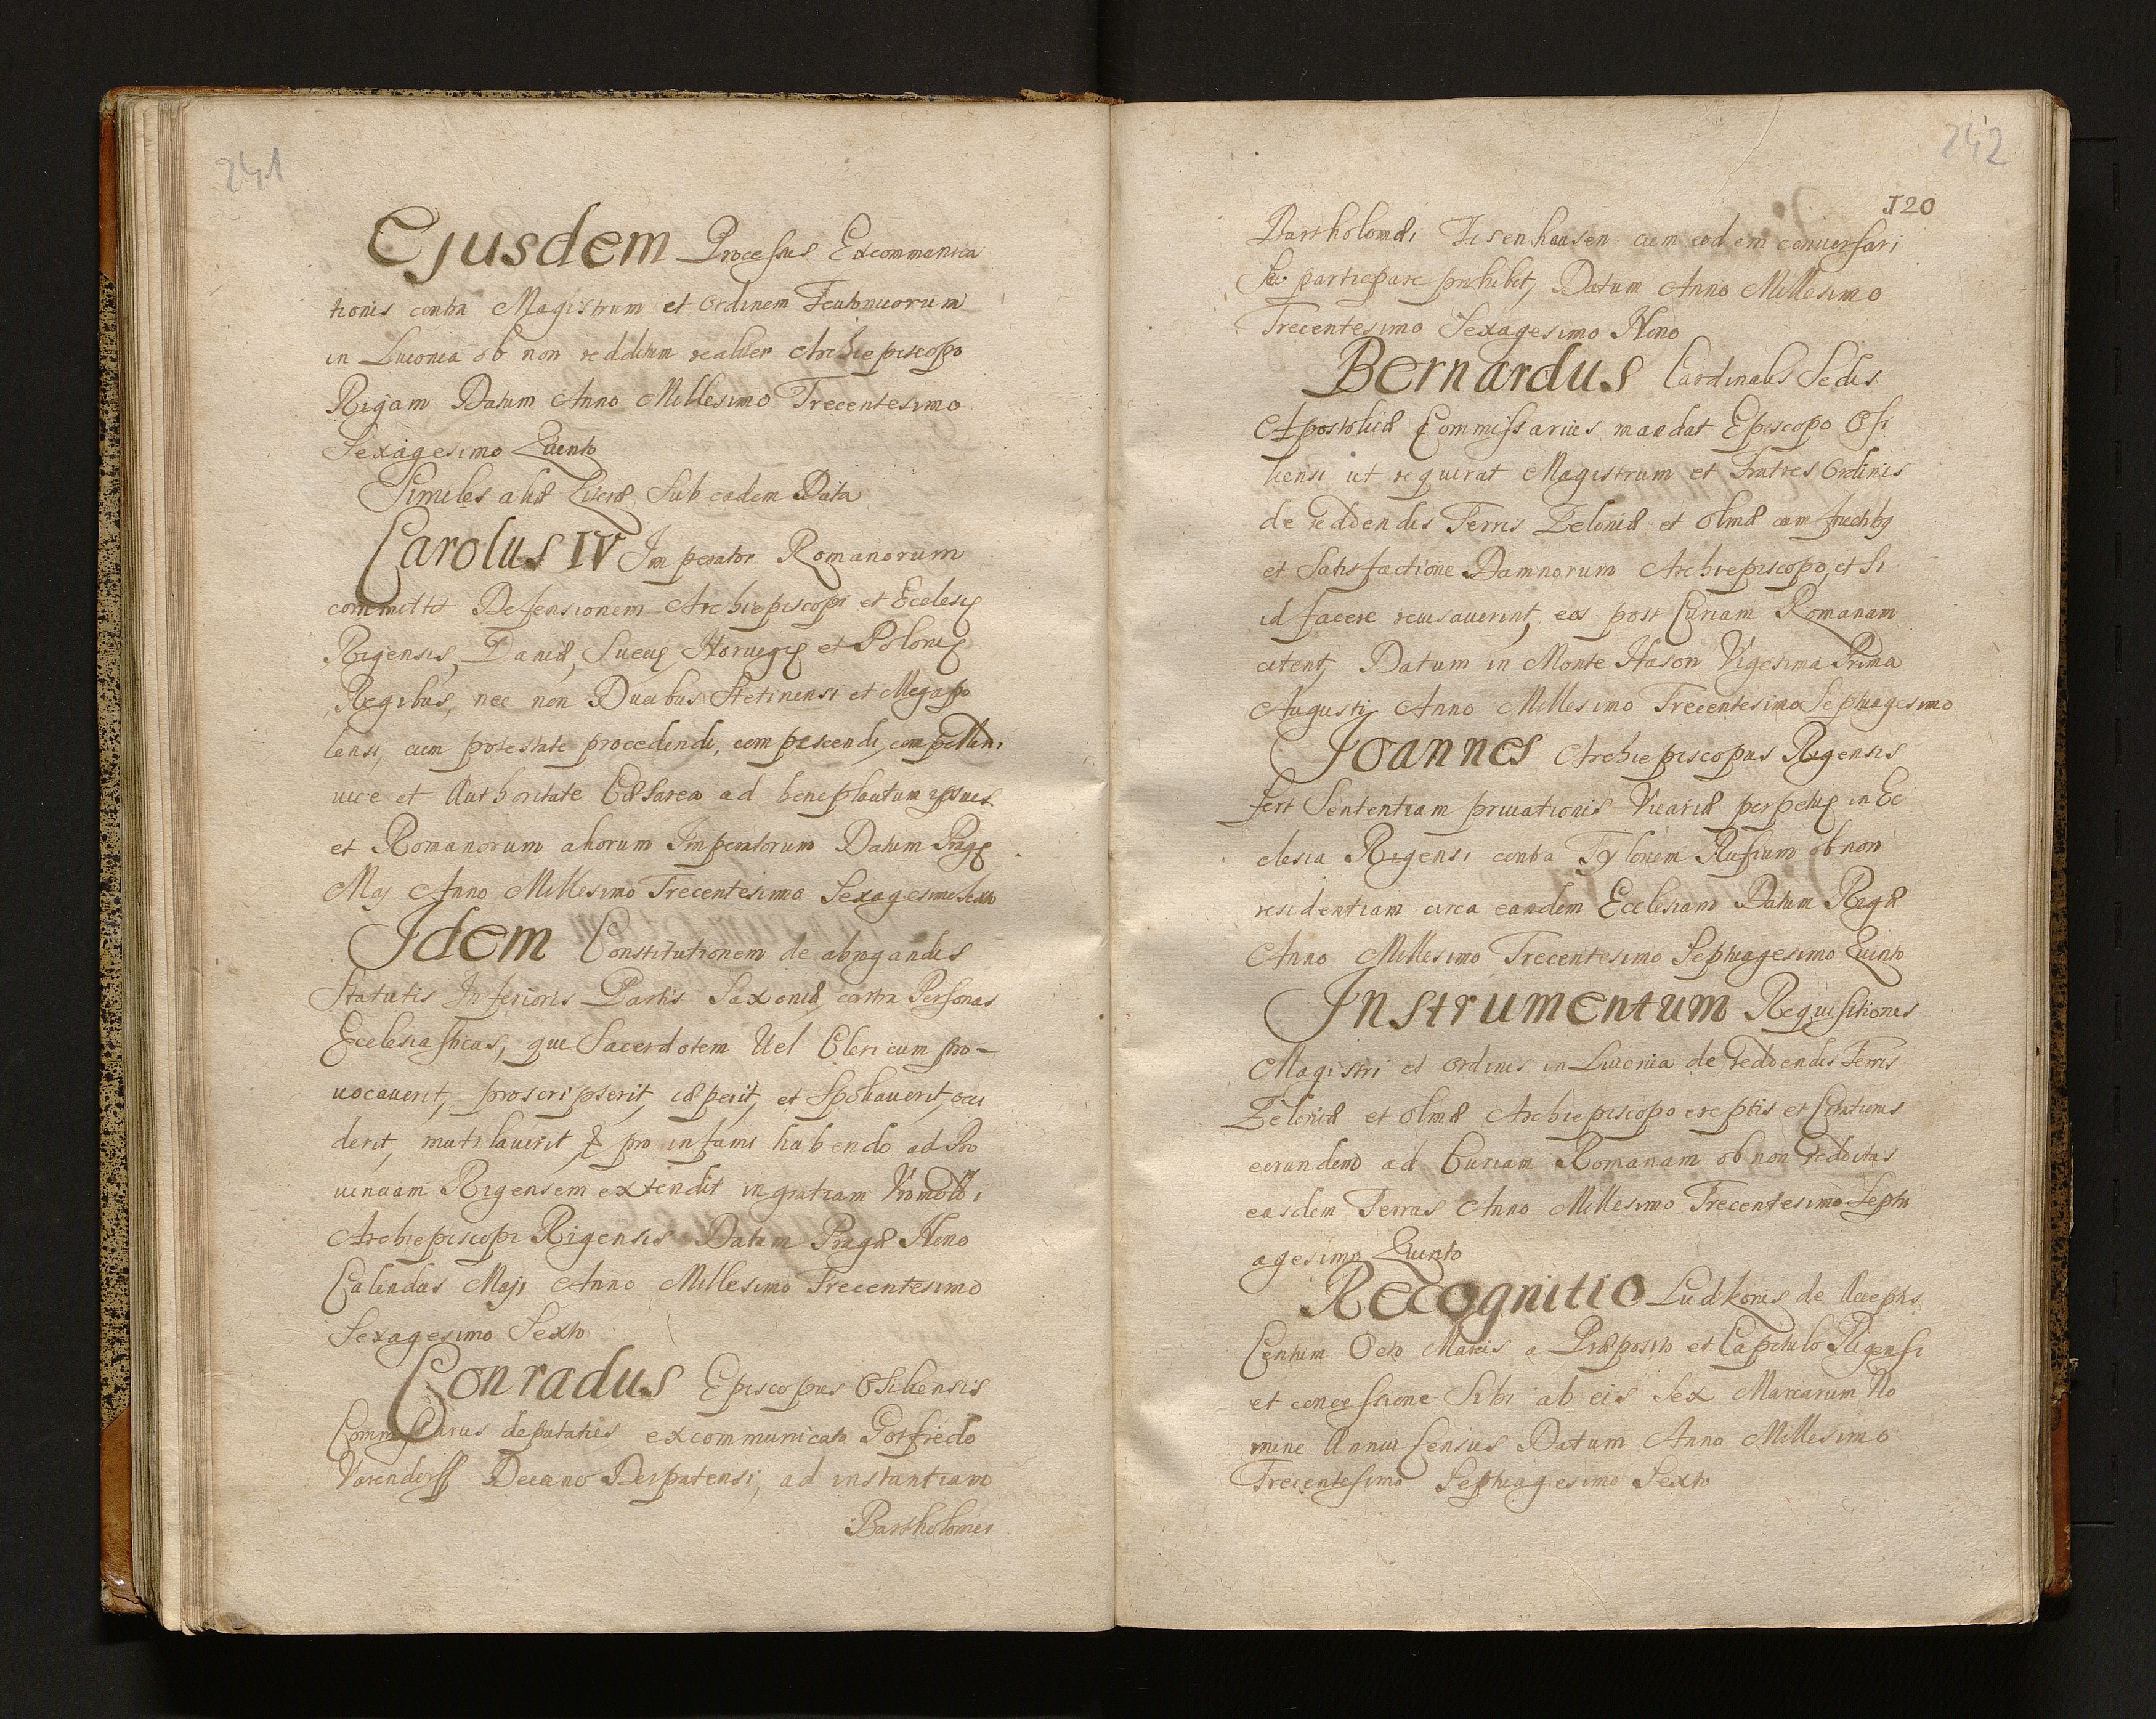 241
Ejusdem Processus Excommunica
tionis contra Magistrum et Ordinem Teutonicorum
in Livonia ob non redditum realiter Archiepiscopo
Rigam Datum Anno Millesimo Trecentesimo
Sexagesimo Quinto
Similes aliæ Literæ Sub eadem Data
Carolus IV Imperator Romanorum
committit Defensionem Archiepiscopi et Ecclesię
Rigensis, Daniæ, Suecię Norvegię et Polonię
Regibus, nec non Ducibus Stetinensi et Megapo
lensi, cum potestate procedendi, compescendi, compellen.
vice et Authoritate Cæsarea ad beneplacitum ipsius
et Romanorum aliorum Imperatorum Datum Pragę
Maj Anno Millesimo Trecentesimo Sexagesimo Sexto
Idem Constitutionem de abrogandis
Statutis Inferioris Partis Saxoniæ, contra Personas
Ecclesiasticas, que Sacerdotem Vel Clericum pro-
vocaverit, proscripserit, cæperit, et Spoliaverit, occi
derit, mutilaverit, & pro infami habendo ad Pro
vinciam Rigensem extendit in gratiam Vromoldi
Archiepiscopi Rigensis Datum Pragæ Nono
Calendas Maji Anno Millesimo Trecentesimo
Sexagesimo Sexto
Conradus Episcopus Osiliensis
Commissarius deputatus excommunicato Gotfredo
Varendorff Decano Derpatensi, ad instantiam
Bartholomei
242
120
Bartholomæi Tisenhausen cum eodem conversari
seu participare prohibet, Datum Anno Millesimo
Trecentesimo Sexagesimo Nono
Bernardus Cardinalis Sedis
Apostolicæ Commissarius mandat Episcopo Osi
liensi ut requirat Magistrum et Fratres Ordinis
de reddendis Terris Zeloniæ et Olmæ cum fructibg
et Satisfactione Damnorum Archiepiscopo, et Si
id facere recusaverint, eos post Curiam Romanam
citent, Datum in Monte Hason Vigesima Prima
Augusti Anno Millesimo Trecentesimo Septuagesimo
Joannes Archiepiscopus Rigensis
fert Sententiam privationis Vicariæ perpetuę in Ec
clesia Rigensi contra Tylonem Rufium ob non
residentiam circa eandem Ecclesiam Datum Rigæ
Anno Millesimo Trecentesimo Septuagesimo Quinto
Instrumentum Requisitionis
Magistri et Ordinis in Livonia de reddendis Terris
Zeloniæ et Olmæ Archiepiscopo ereptis et Citationis
eorundem ad Curiam Romanam ob non redditas
easdem Terras Anno Millesimo Trecentesimo Septu
agesimo Quinto
Recognitio Ludkonis de Acceptis
Centum Octo Marcis a Præposito et Capitulo Rigensi
et concessione Sibi ab eis Sex Marcarum No
mine Annui Census Datum Anno Millesimo
Trecentesimo Septuagesimo Sexto